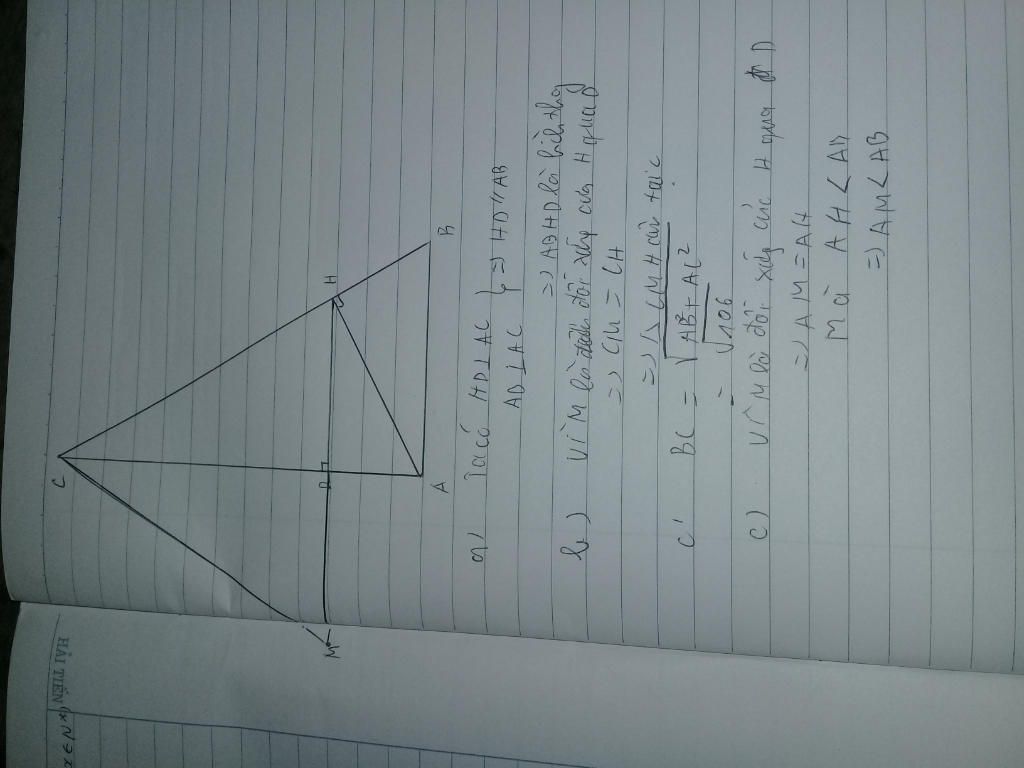 C
M
D
H
A
B
a) Ta có HD⊥AC
AD⊥AC } => HD//AB
=> ABHD là hình thang
b) Vì M là đối xứng của H qua D
=> CM = CH
=> △ CMH cân tại C
c) BC = √AB²+AC²
= √106
c) Vì M là đối xứng của H qua D
=> AM = AH
Mà AH < AB
=> AM < AB
HẢI TIẾN
x ∈ N*)